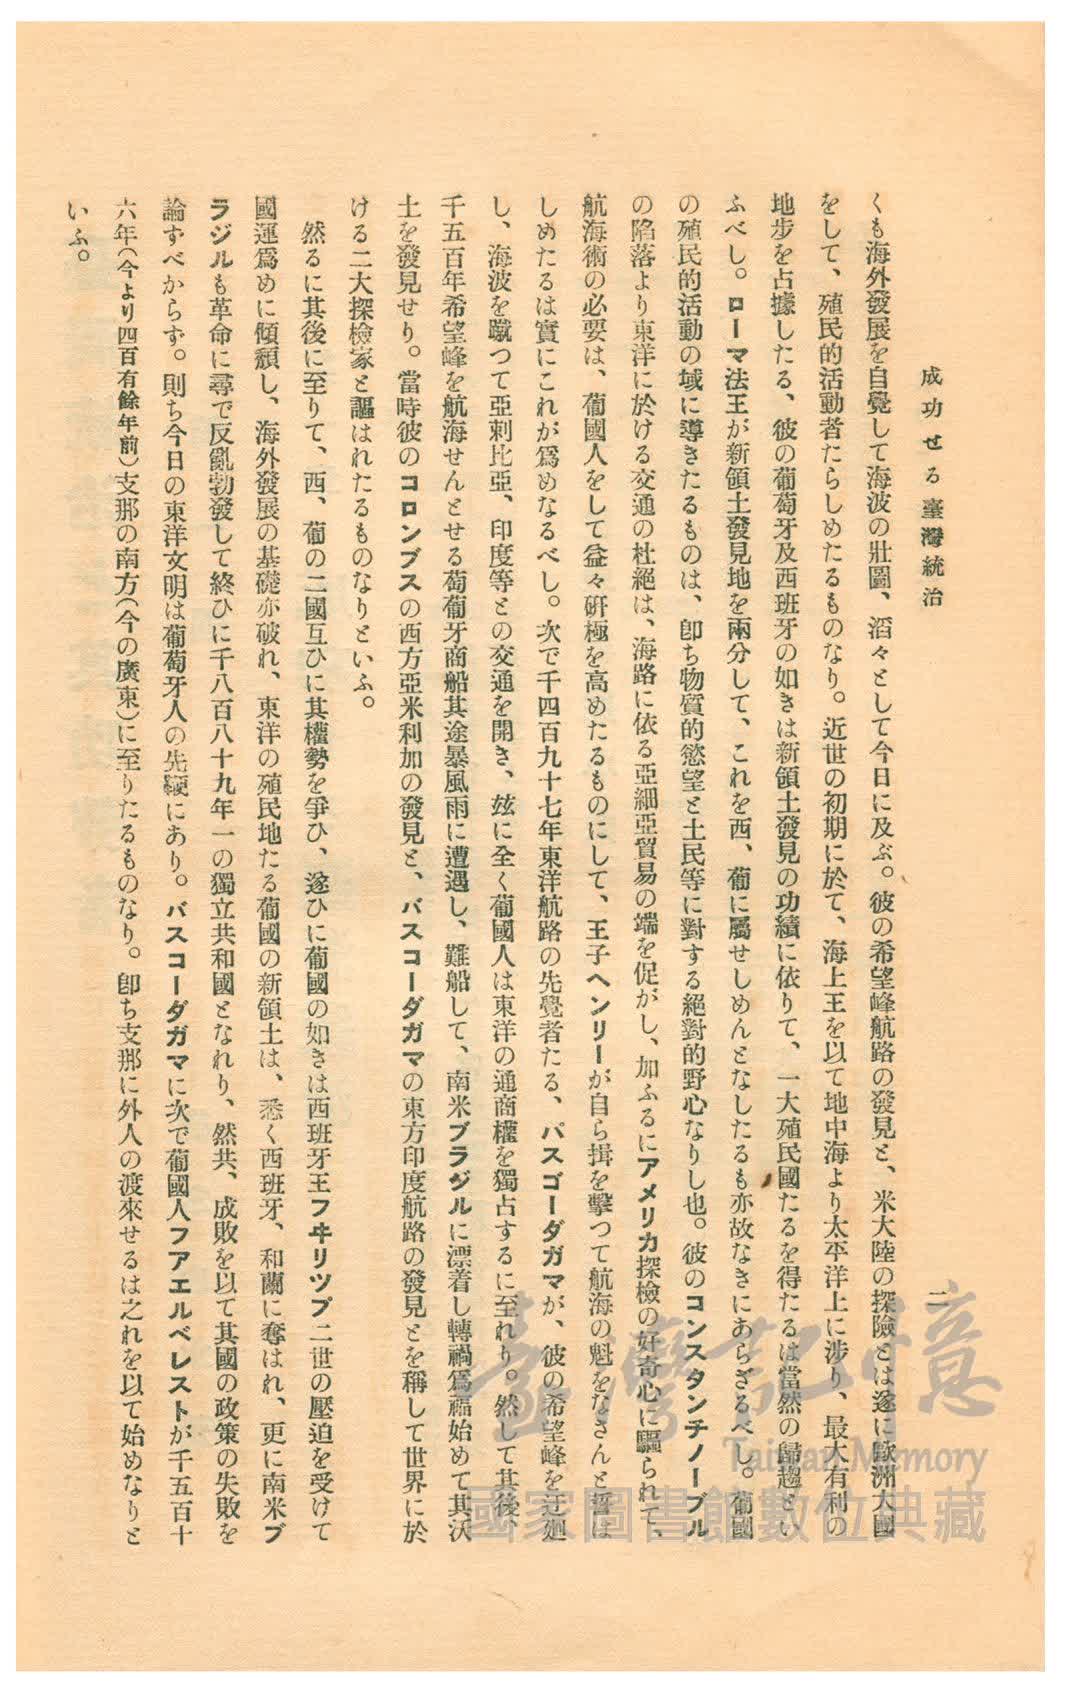 成功せる臺灣統治
二
くも海外發展を自覺して海波の壯圖、滔々として今日に及ぶ。彼の希望峰航路の發見と、米大陸の探險とは遂に歐洲大國
をして、殖民的活動者たらしめたるものなり。近世の初期に於て、海上王を以て地中海より太平洋上に涉り、最大有利の
地步を占據したる、彼の葡萄牙及西班牙の如きは新領土發見の功績に依りて、一大殖民國たるを得たるは當然の歸趨とい
ふべし。ローマ法王が新領土發見地を兩分して、これを西、葡に屬せしめんとなしたるも亦故なきにあらざるべし。葡國
の殖民的活動の域に導きたるものは、卽ち物質的慾望と土民等に對する絕對的野心なりし也。彼のコンスタンチノーブル
の陷落より東洋に於ける交通の杜絕は、海路に依る亞細亞貿易の端を促がし、加ふるにアメリカ探檢の好奇心に驅られて、
航海術の必要は、葡國人をして益々硏極を高めたるものにして、王子ヘンリーが自ら揖を擊つて航海の魁をなさんと誓は
しめたるは實にこれが爲めなるべし。次で千四百九十七年東洋航路の先覺者たる、バスゴーダガマが、彼の希望峰を迂廻
し、海波を蹴つて亞剌比亞、印度等との交通を開き、玆に全く葡國人は東洋の通商權を獨占するに至れり。然して其後、
千五百年希望峰を航海せんとせる萄葡牙商船其途暴風雨に遭遇し、難船して、南米ブラジルに漂着し轉禍爲福始めて其沃
土を發見せり。當時彼のコロンブスの西方亞米利加の發見と、バスコーダガマの東方印度航路の發見とを稱して世界に於
ける二大探檢家と謳はれたるものなりといふ。
然るに其後に至りて、西、葡の二國互ひに其權勢を爭ひ、遂ひに葡國の如きは西班牙王フヰリツプ二世の壓迫を受けて
國運爲めに傾頽し、海外發展の基礎亦破れ、東洋の殖民地たる葡國の新領土は、悉く西班牙、和蘭に奪はれ、更に南米ブ
ラジルも革命に尋で反亂勃發して終ひに千八百八十九年一の獨立共和國となれり、然共、成敗を以て其國の政策の失敗を
論ずべからず。則ち今日の東洋文明は葡萄牙人の先鞭にあり。バスコーダガマに次で葡國人フアエルベレストが千五百十
六年(今より四百有餘年前)支那の南方(今の廣東)に至りたるものなり。卽ち支那に外人の渡來せるは之れを以て始めなりと
いふ。
臺灣記憶
Taiwan Memory
國家圖書館數位典藏